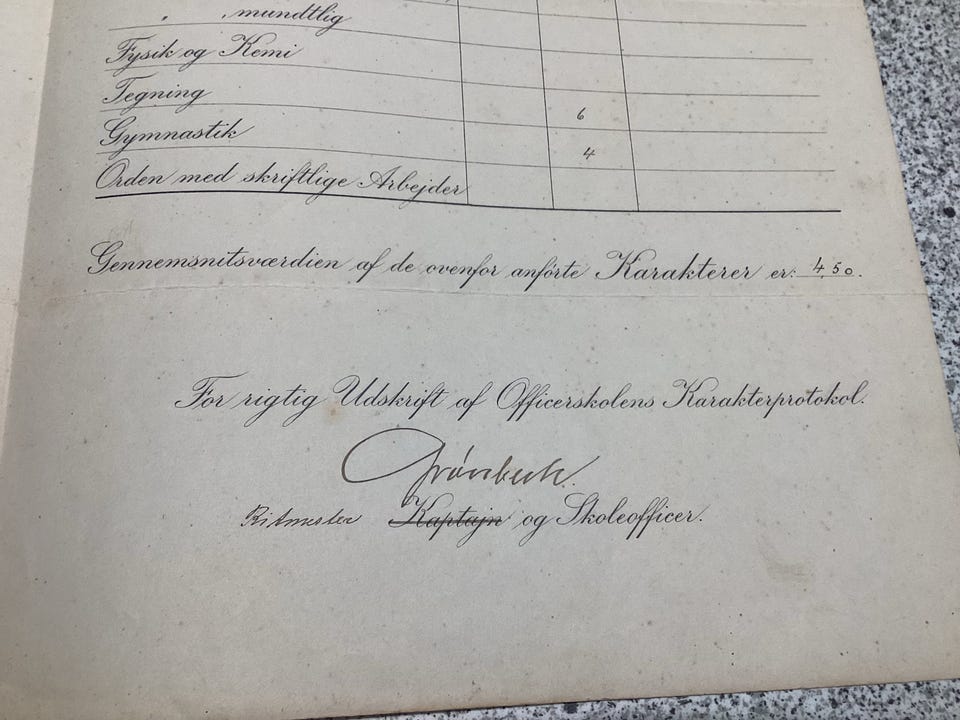 " " mundtlig
Fysik og Kemi
Tegning
Gymnastik 6
Orden med skriftlige Arbejder 4
Gennemsnitsværdien af de ovenfor anførte Karakterer er: 4,50.
For rigtig Udskrift af Officerskolens Karakterprotokol.
Grønbech.
Ritmester Kaptajn og Skoleofficer.